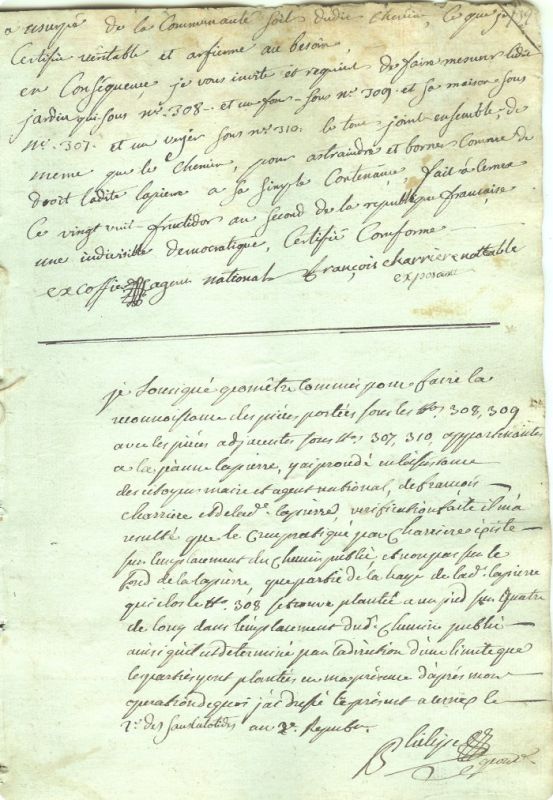 a usurpé de la Communauté soit dudit chemin, ce que je
Certifie véritable et affirme au besoin
en Conséquence je vous invite et requiert de faire mesurer ledit
jardin qui sous no. 308. et un four sous no. 309. et sa maison sous
no. 307. et un verjer sous no. 310. le tout joint ensemble, de
meme que le Chemin, pour astraindre et borner Comme de
droit ladite lapierre a sa simple Contenance, fait à Cernex
Ce vingt huit fructidor an second de la république française
une indivisible democratique, Certifié Comforme
excoffier agent national françois charriere nottable
exposant
je Sousigné geomêtre Commis pour faire la
reconnoissance des pieces portées sous les Nos. 308, 309
avec les piéces adjacentes sous Nos. 307, 310, appartenantes
a la jeanne lapierre, y ai procédé en l'assistance
des citoyens maire et agent national, de francois
charriere et de lad. lapierre, vérification faite il m'a
resulté que le Creux pratiqué par Charriere existe
sur l'emplacement du Chemin public et non pas sur le
fond de la lapierre que partie de la haye de lad. lapierre
qui clos le No. 308 se trouve plantée a un pied sur quatre
de long dans l'emplacement dud. Chemin public
ainsi qu'il est determiné par la direction d'une limite que
les parties y ont plantées en ma présence d'après mon
operation de quoi j'ai dressé le présent a cernex le
2e. des Sanculotides an 2e. Repub.